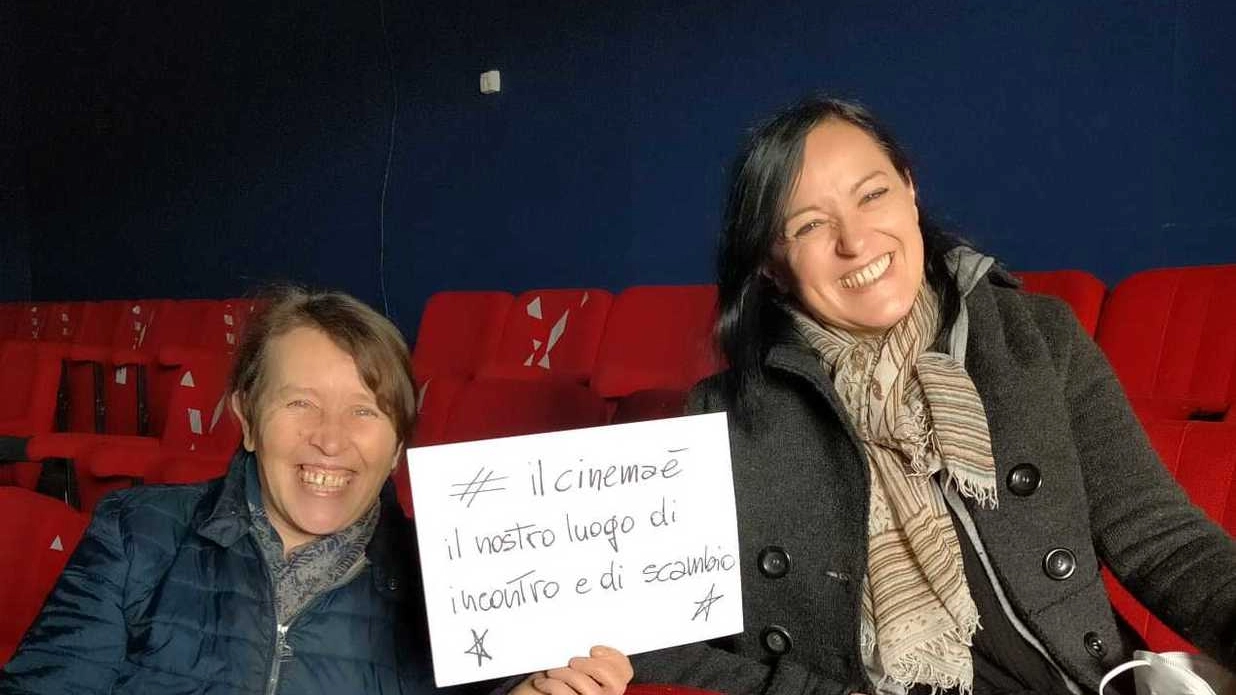 # il cinema è
il nostro luogo di
incontro e di scambio